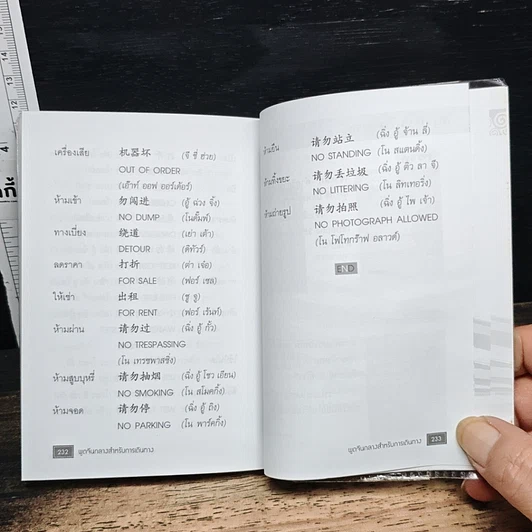 เครื่องเสีย 机器坏 (จี ชี่ ฮ่วย)
OUT OF ORDER
(เอ๊าท์ ออฟ ออร์เด้อร์)
ห้ามเข้า 勿闯进 (อู้ ฉ่วง จิ้ง)
NO DUMP (โนดั๊มพ์)
ทางเบี่ยง 绕道 (เย่า เต้า)
DETOUR (ดีทัวร์)
ลดราคา 打折 (ต่า เจ๋อ)
FOR SALE (ฟอร์ เซล)
ให้เช่า 出租 (ชู จู)
FOR RENT (ฟอร์ เร้นท์)
ห้ามผ่าน 请勿过 (ฉิ่ง อู้ กั้ว)
NO TRESPASSING
(โน เทรซพาสซิ่ง)
ห้ามสูบบุหรี่ 请勿抽烟 (ฉิ่ง อู้ โชว เอียน)
NO SMOKING (โน สโมคกิ้ง)
ห้ามจอด 请勿停 (ฉิ่ง อู้ ถิง)
NO PARKING (โน พาร์คกิ้ง)
232 พูดจีนกลางสำหรับการเดินทาง
ห้ามยืน 请勿站立 (ฉิ่ง อู้ จ้าน ลี่)
NO STANDING (โน สแตนดิ้ง)
ห้ามทิ้งขยะ 请勿丢垃圾 (ฉิ่ง อู้ ติว ลา จี)
NO LITTERING (โน ลิทเทอริ่ง)
ห้ามถ่ายรูป 请勿拍照 (ฉิ่ง อู้ ไพ เจ้า)
NO PHOTOGRAPH ALLOWED
(โน โฟโทกร๊าฟ อลาวด์)
END
พูดจีนกลางสำหรับการเดินทาง 233